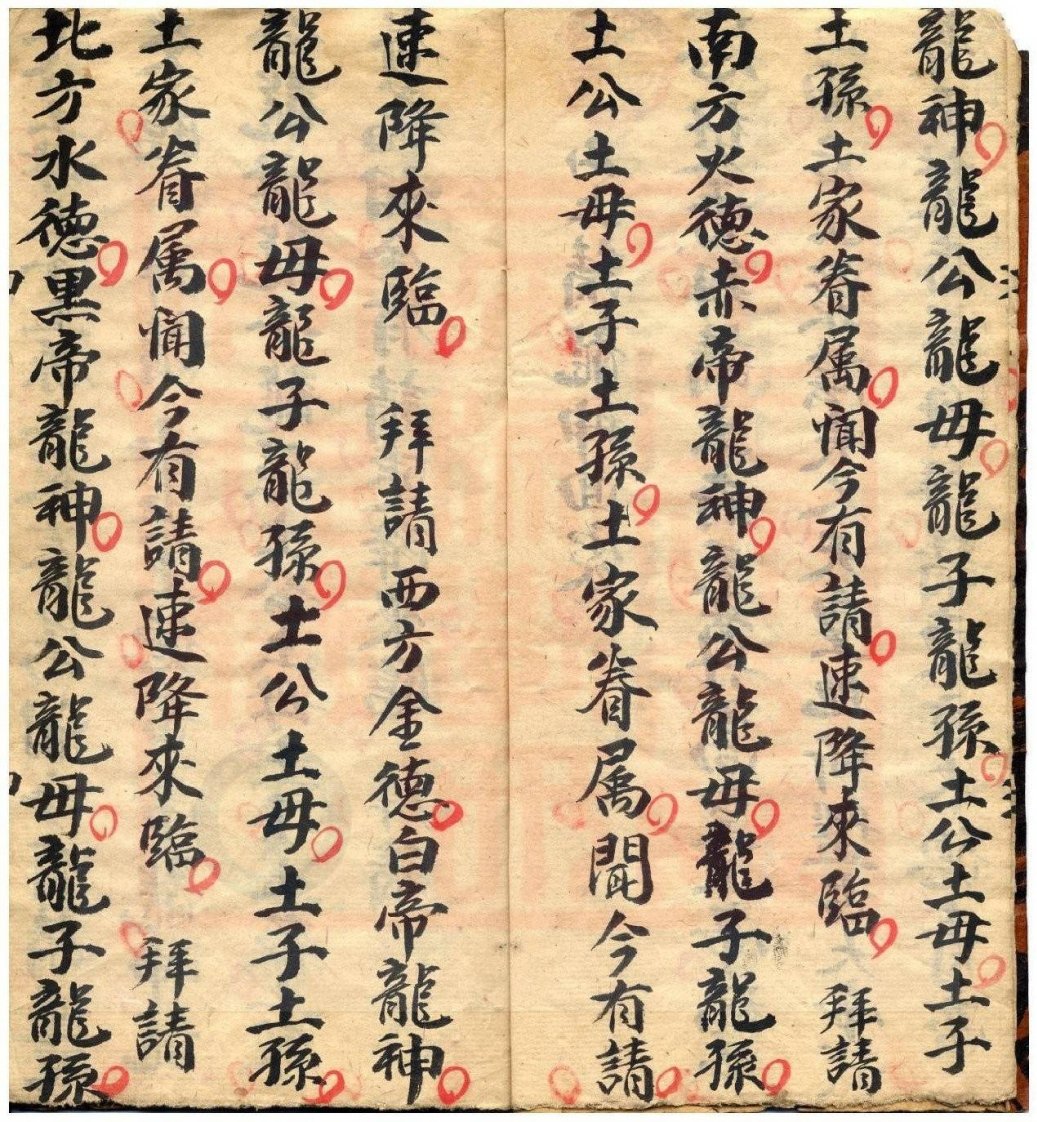 龍神龍公龍母龍子龍孫土公土母土子
土孫土家眷属闻今有請速降來臨 拜請
南方火德赤帝龍神龍公龍母龍子龍孫
土公土母土子土孫土家眷属聞今有請
速降來臨 拜請西方金德白帝龍神
龍公龍母龍子龍孫土公土母土子土孫
土家眷属闻今有請速降來臨 拜請
北方水德黑帝龍神龍公龍母龍子龍孫